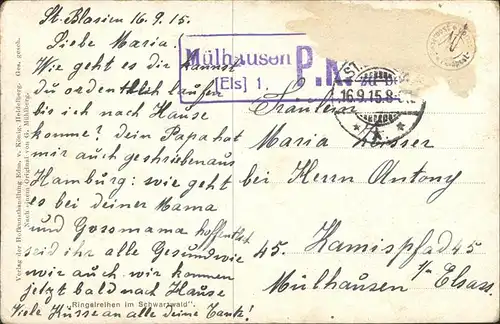 St. Blasien 16.9.15.
Liebe Maria.
Wie geht es dir kannst
du ordentlich laufen
bis ich nach Hause
komme? Dein Papa hat
mir auch geschrieben aus
Hamburg: wie geht
es bei deiner Mama
und Gossmama hoffentlich
seid ihr alle Gesund wie
wir auch wir kommen
jetzt bald nach Hause
Viele Küsse an alle deine Tante!
Mülhausen
[Els] 1.
P.K.
16.9.15.8-
Fräulein
Maria
bei Herrn Antony
45. Hamispfad 45
Mülhausen i/n Elsass.
"Ringelreihen im Schwarzwald".
Verlag der Hofkunsthandlung Edm. v. König, Heidelberg. Ges. gesch.
Nach einem Original von G. Mühlberg.